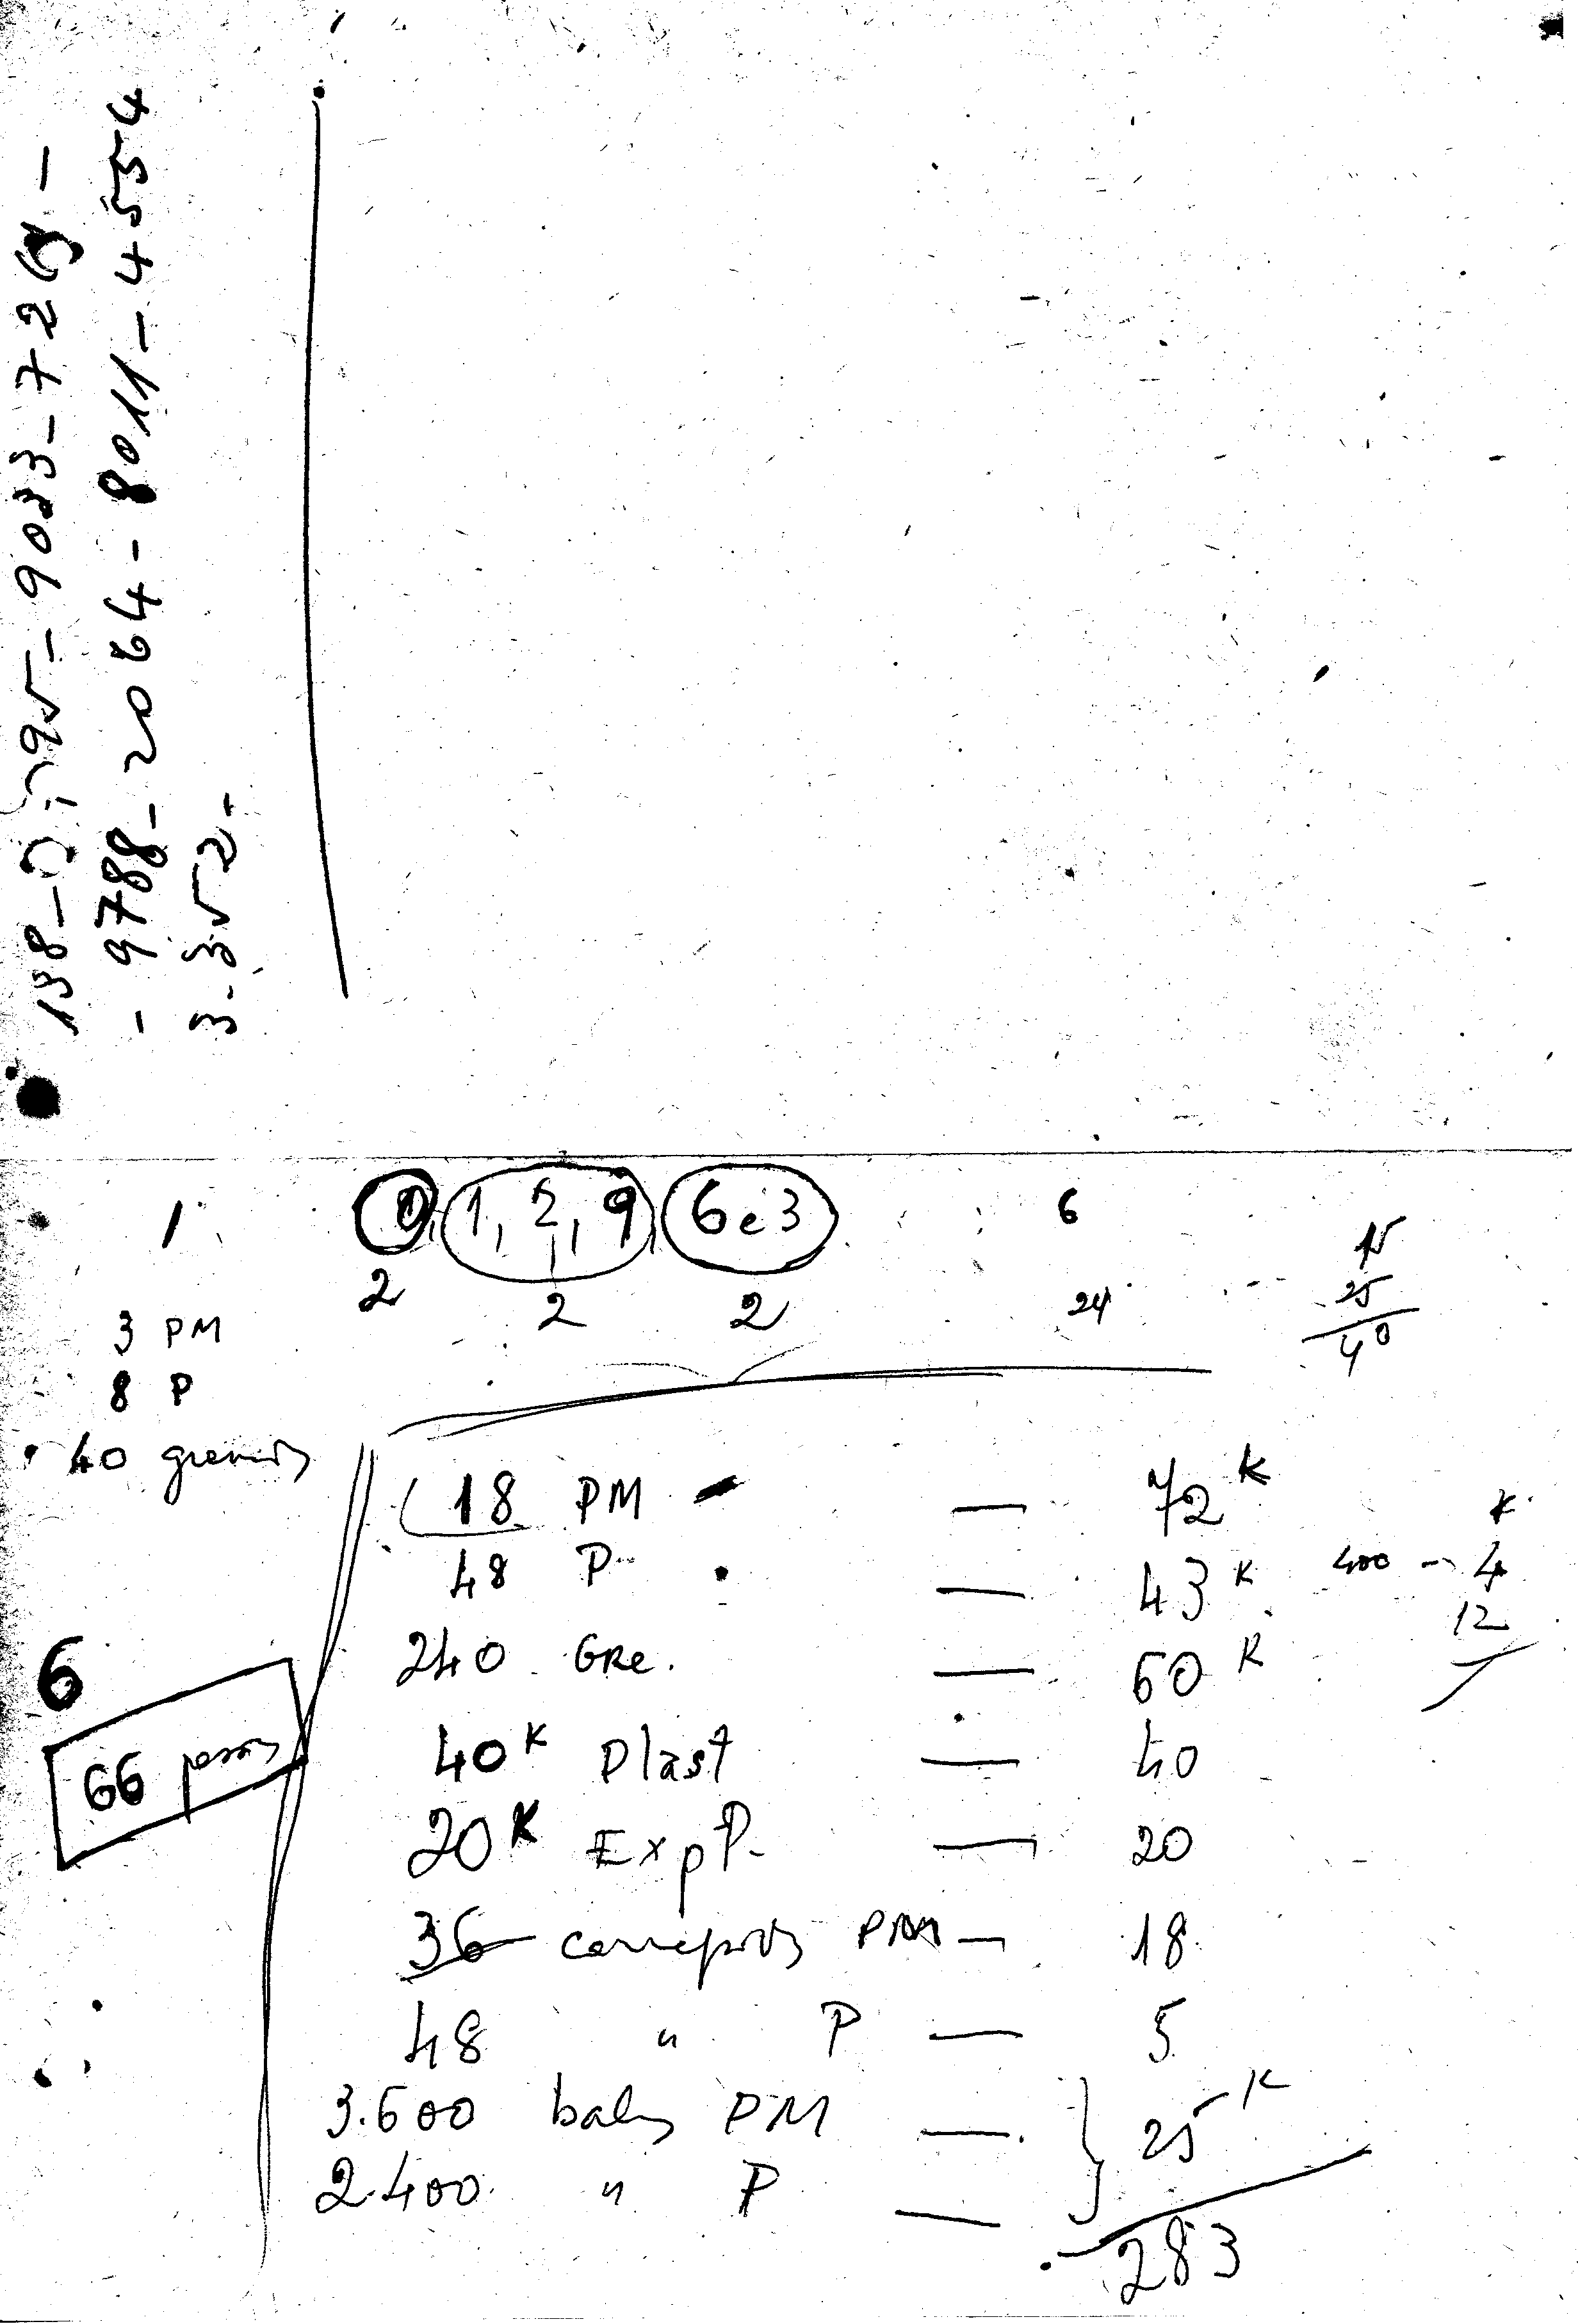 - 9788-2064-8011-4554
3-352-
0, 1, 2, 9, 6 e 3
2 2 2
1
3 PM
8 P
40
6
24
15
25
40
6
66
18 PM — 72 K
48 P — 43 K
240 GRe. — 60 K
40 K Plast — 40
20 K Exp P. — 20
36 PM — 18
48 " P — 5
3.600 balas PM —
2.400 " P — 25 K
283
K
400 - 4
12